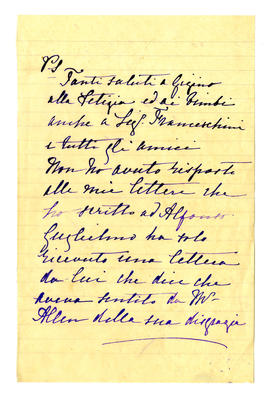 PS
Tanti saluti a Gigino
alla Letizia ed ai bimbi
anche a Sig. Franceschini
e tutti gli amici
Non ho avuto risposta
alle mie lettere che
ho scritto ad Alfonso
Guglielmo ha solo
ricevuto una lettera
da lui che dice che
aveva sentito da Mr
Allen della sua disgrazia